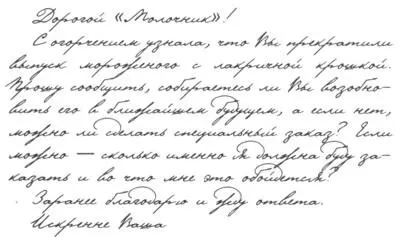 Дорогой «Молочник»!
С огорчением узнала, что Вы прекратили
выпуск мороженого с лакричной крошкой.
Прошу сообщить, собираетесь ли Вы возобно-
вить его в ближайшем будущем, а если нет,
можно ли сделать специальный заказ? Если
можно — сколько именно я должна буду за-
казать и во что мне это обойдется?
Заранее благодарю и жду ответа.
Искренне Ваша